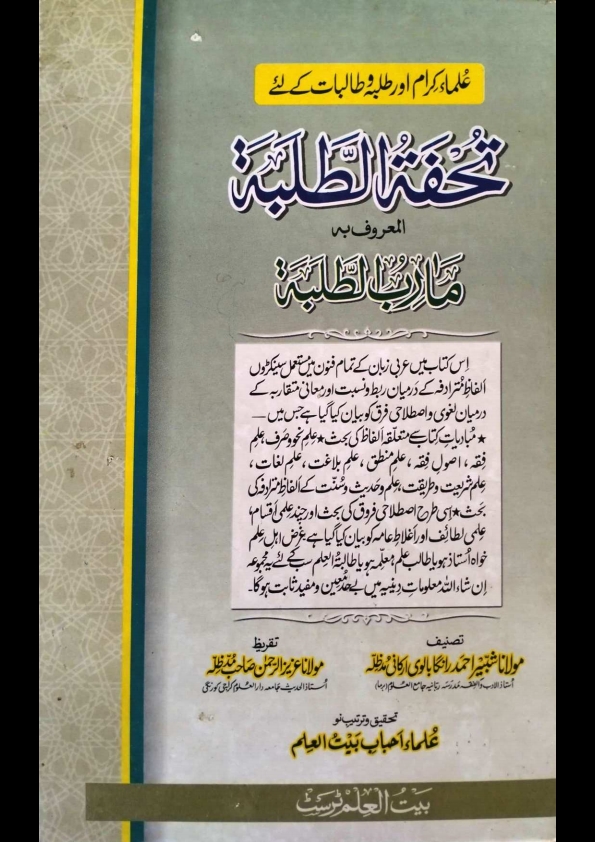 عُلماءِ کِرام اور طلبہ و طالبات کے لئے
تُحْفَۃُ الطَّلَبَۃ
المعروف بہ
مَاٰرِبُ الطَّلَبَۃ
اِس کتاب میں عربی زبان کے تمام فنون میں مستعمل سینکڑوں
الفاظِ مُترادفہ کے درمیان ربط و نسبت اور معانی متقاربہ کے
درمیان لغوی و اصطلاحی فرق کو بیان کیا گیا ہے جس میں —
★ مُبادیاتِ کتاب سے متعلقہ الفاظ کی بحث ★ علمِ نحو و صَرف، علمِ
فِقہ، اصولِ فقہ، علمِ منطق، علمِ بلاغت، علمِ لغات،
علمِ شریعت و طریقت، علم و حدیث و سُنّت کے الفاظِ مترادفہ کی
بحث ★ اِسی طرح اصطلاحی فروق کی بحث اور چند علمی اَقسام،
علمی لطائف اور اَغلاطِ عامہ کو بیان کیا گیا ہے، غرض اہلِ علم
خواہ اُستاذ ہو یا طالب علم، معلّمہ ہو یا طالبۃُ العلم سب کے لئے یہ مجموعہ
اِن شاء اللہ معلوماتِ دینیہ میں بے حد مُعین و مفید ثابت ہوگا۔
تصنیف
مولانا شبّیر احمد رانکابالوی ارکانی مُدّ ظلّہ
اُستاذ الادب والفقہ مَدرَسَہ ربّانیہ جامع العلوم (برما)
تقریظ
مولانا عزیز الرّحمٰن صاحب مُدّ ظلّہ
اُستاذ الحدیث جامعہ دار العلوم کراچی کورنگی
تحقیق و ترتیبِ نو
عُلماء احبابِ بَیتُ العِلم
بَیتُ العِلم ٹرسٹ